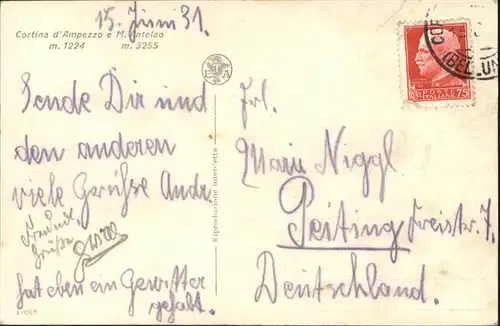 15. Juni 31.
Cortina d'Ampezzo e M. Antelao
m. 1224 m. 3255
Sende Dir und
den anderen
viele Grüsse Andr.
Freundl.
Grüsse
hat eben ein Gewitter
gehabt.
E A
Riproduzione interdetta
POSTE
ITALIANE 75
Frl.
Marie Niggl
Peiting Freistr. 7.
Deutschland.